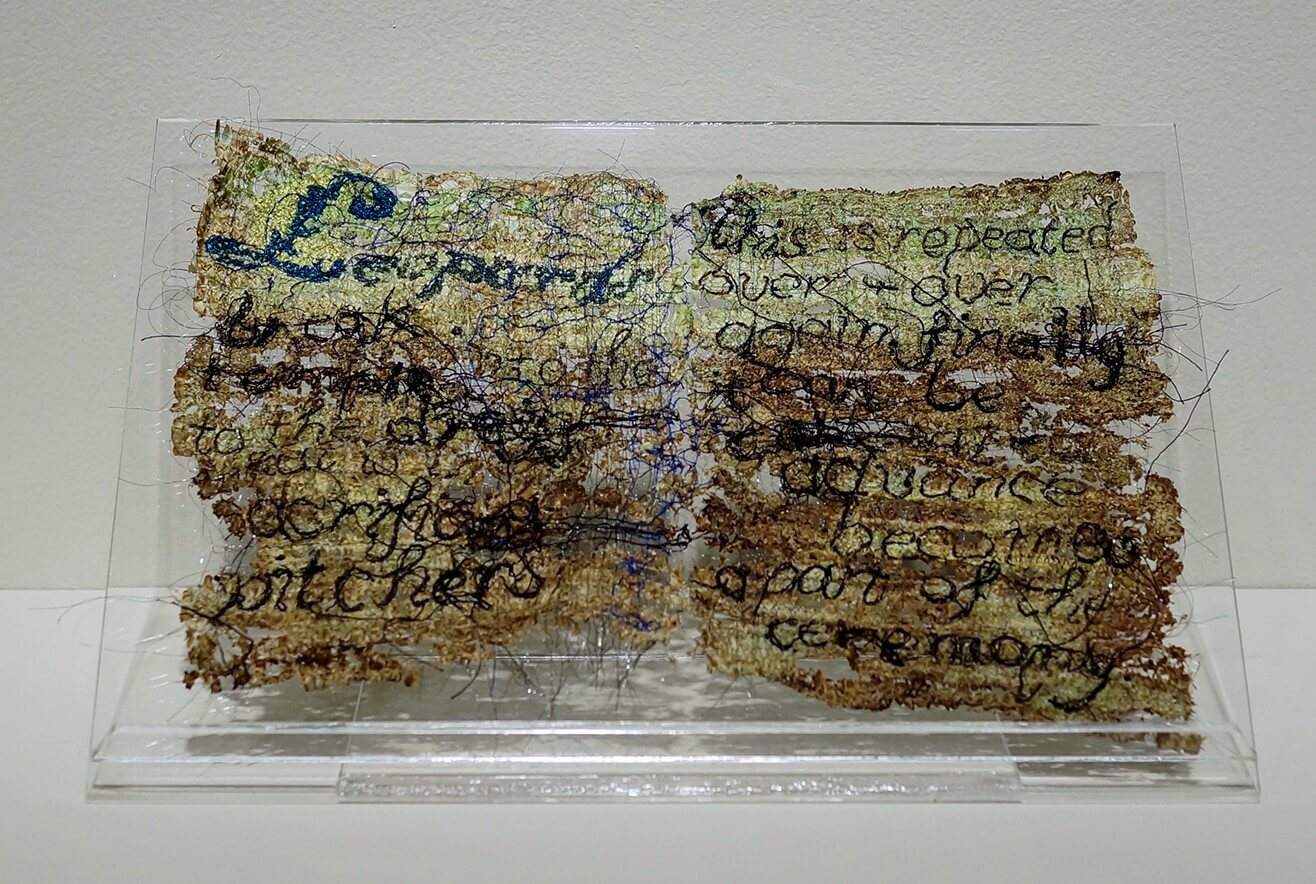 Leopards
break into the
temple
to the dregs
what is
pitchers
this is repeated
over + over
again, finally
it can be
advance
becomes
a part of the
ceremony